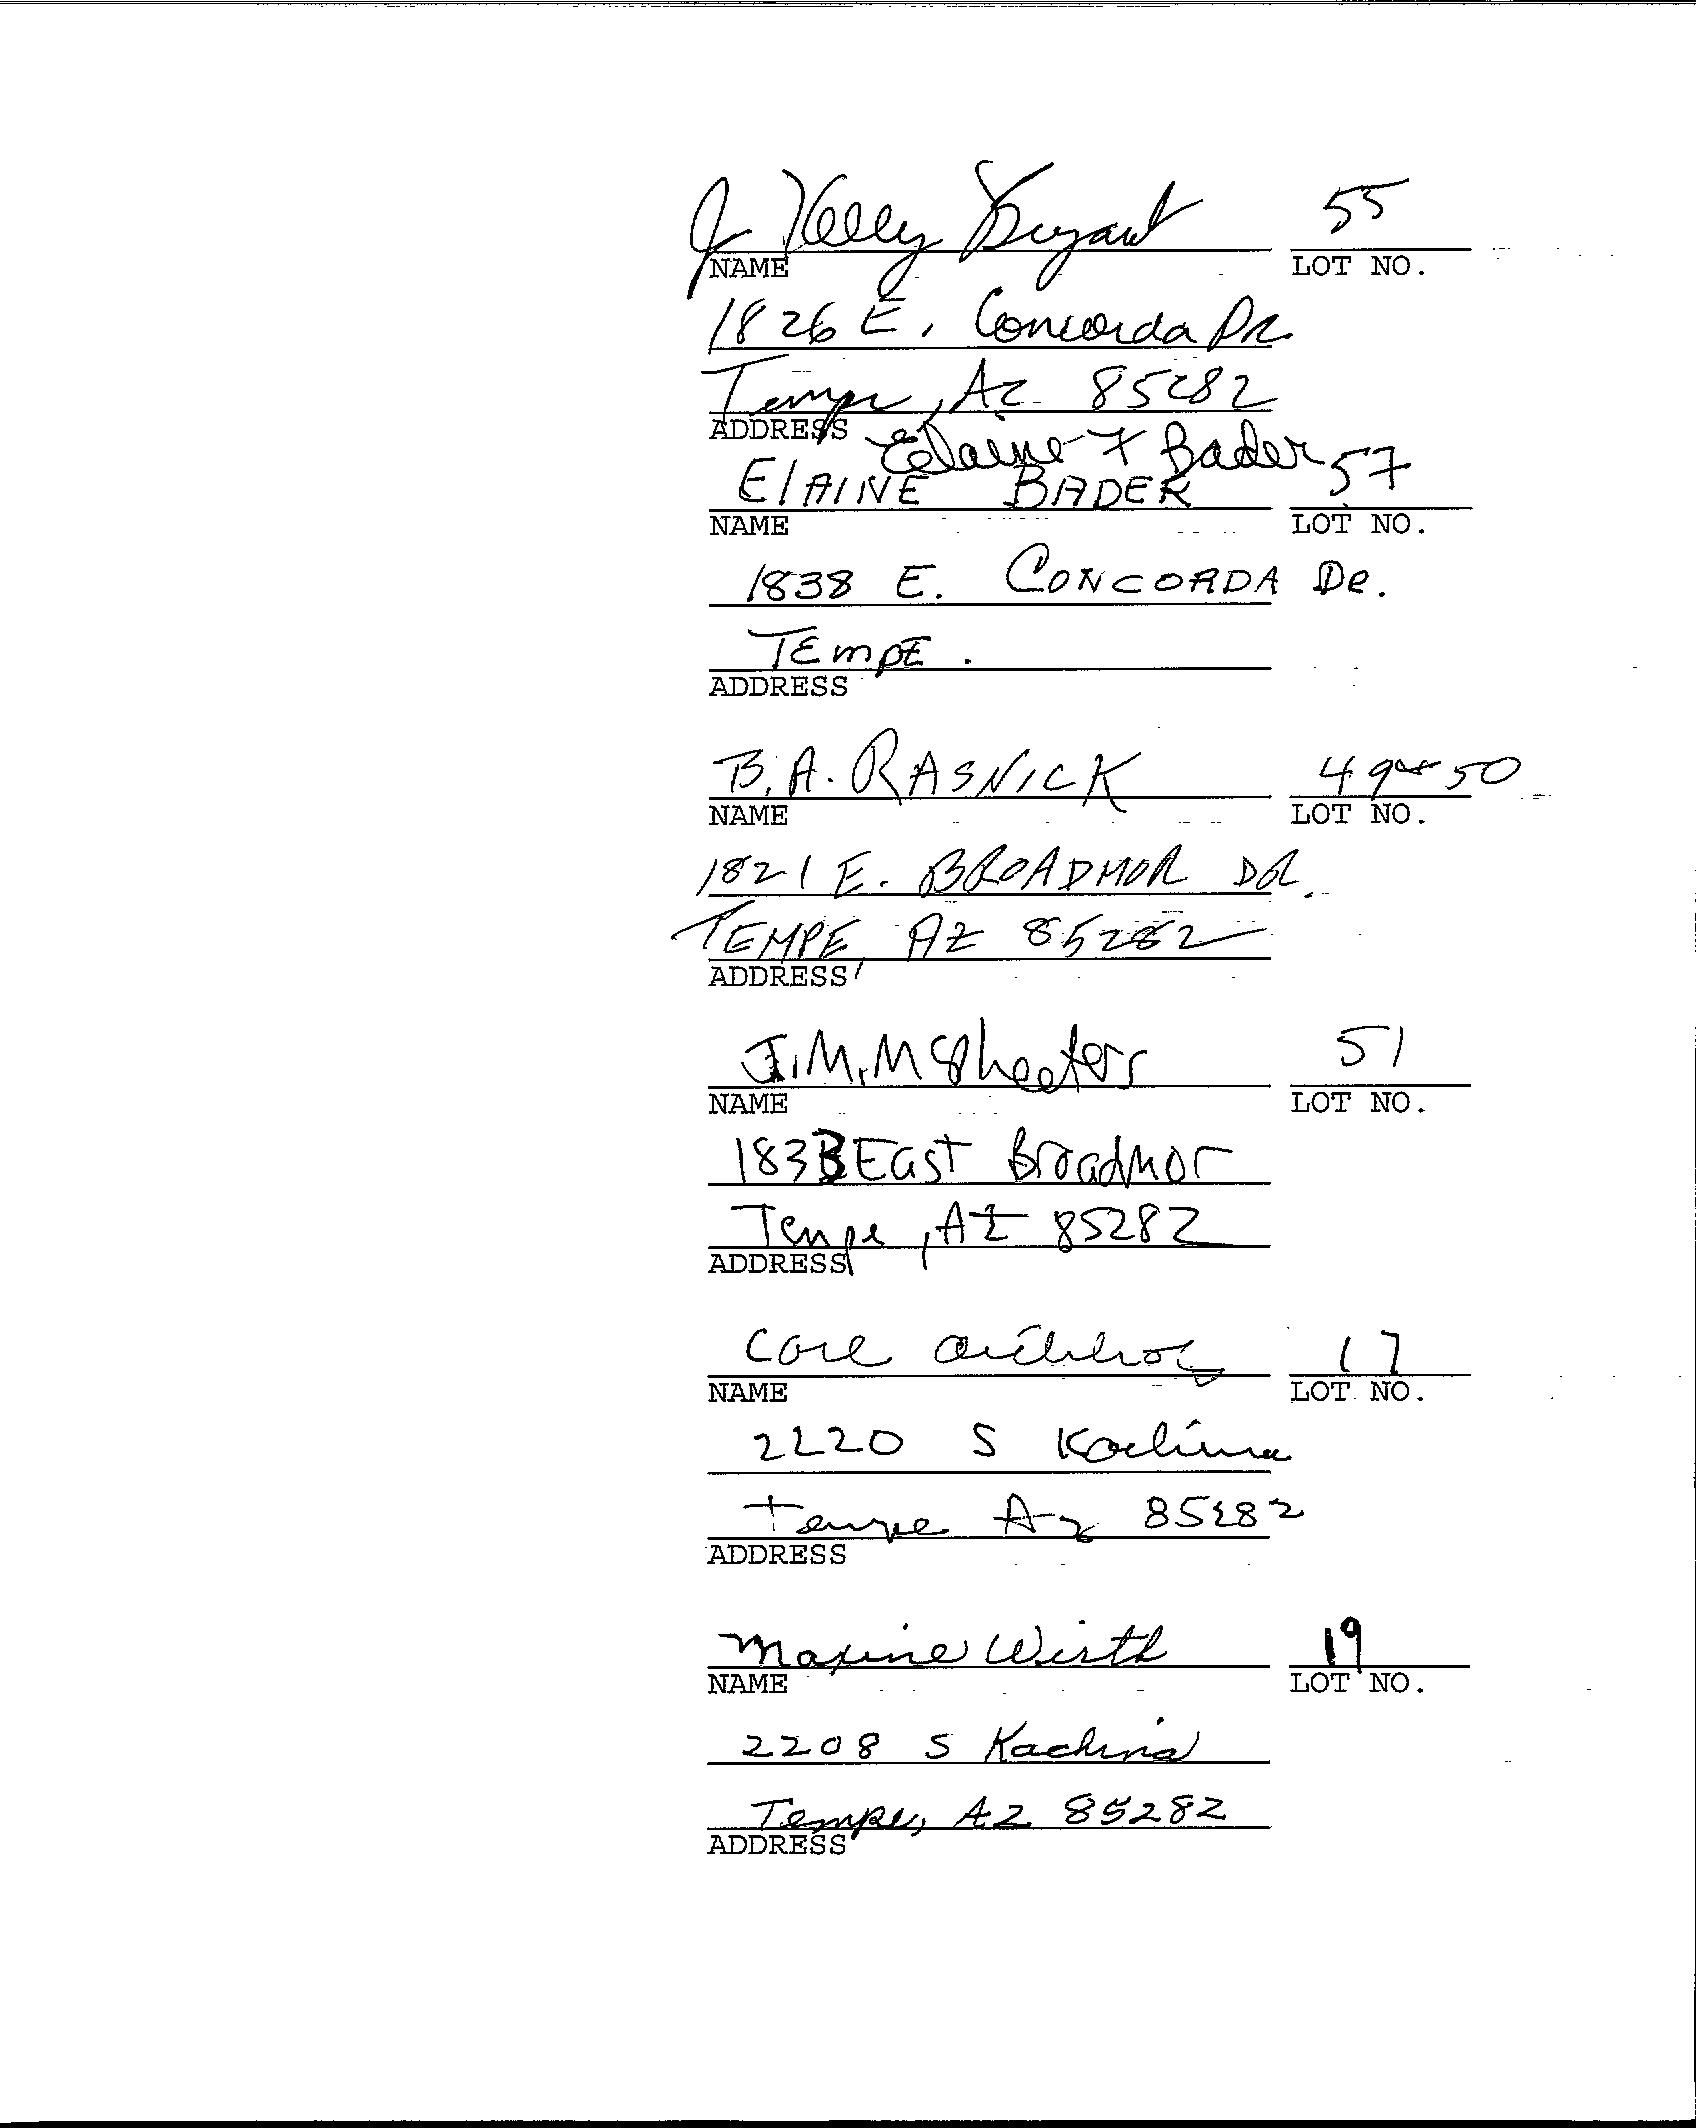 J Kelly Bryant 55
NAME LOT NO.
1826 E. Concorda Dr.
Tempe, Az 85282
ADDRESS
Elaine F Bader
ElAINE BADER 57
NAME LOT NO.
1838 E. CONCORDA Dr.
TEmpE.
ADDRESS
B.A. RASNICK 49 50
NAME LOT NO.
1821 E. BROADMOR DR.
TEMPE, AZ 85282
ADDRESS
J.M. McSheeters 51
NAME LOT NO.
1833 East Broadmor
Tempe, AZ 85282
ADDRESS
17
NAME LOT NO.
2220 S Kachina
Tempe Az 85282
ADDRESS
Maxine Wirth 19
NAME LOT NO.
2208 S Kachina
Tempe, AZ 85282
ADDRESS